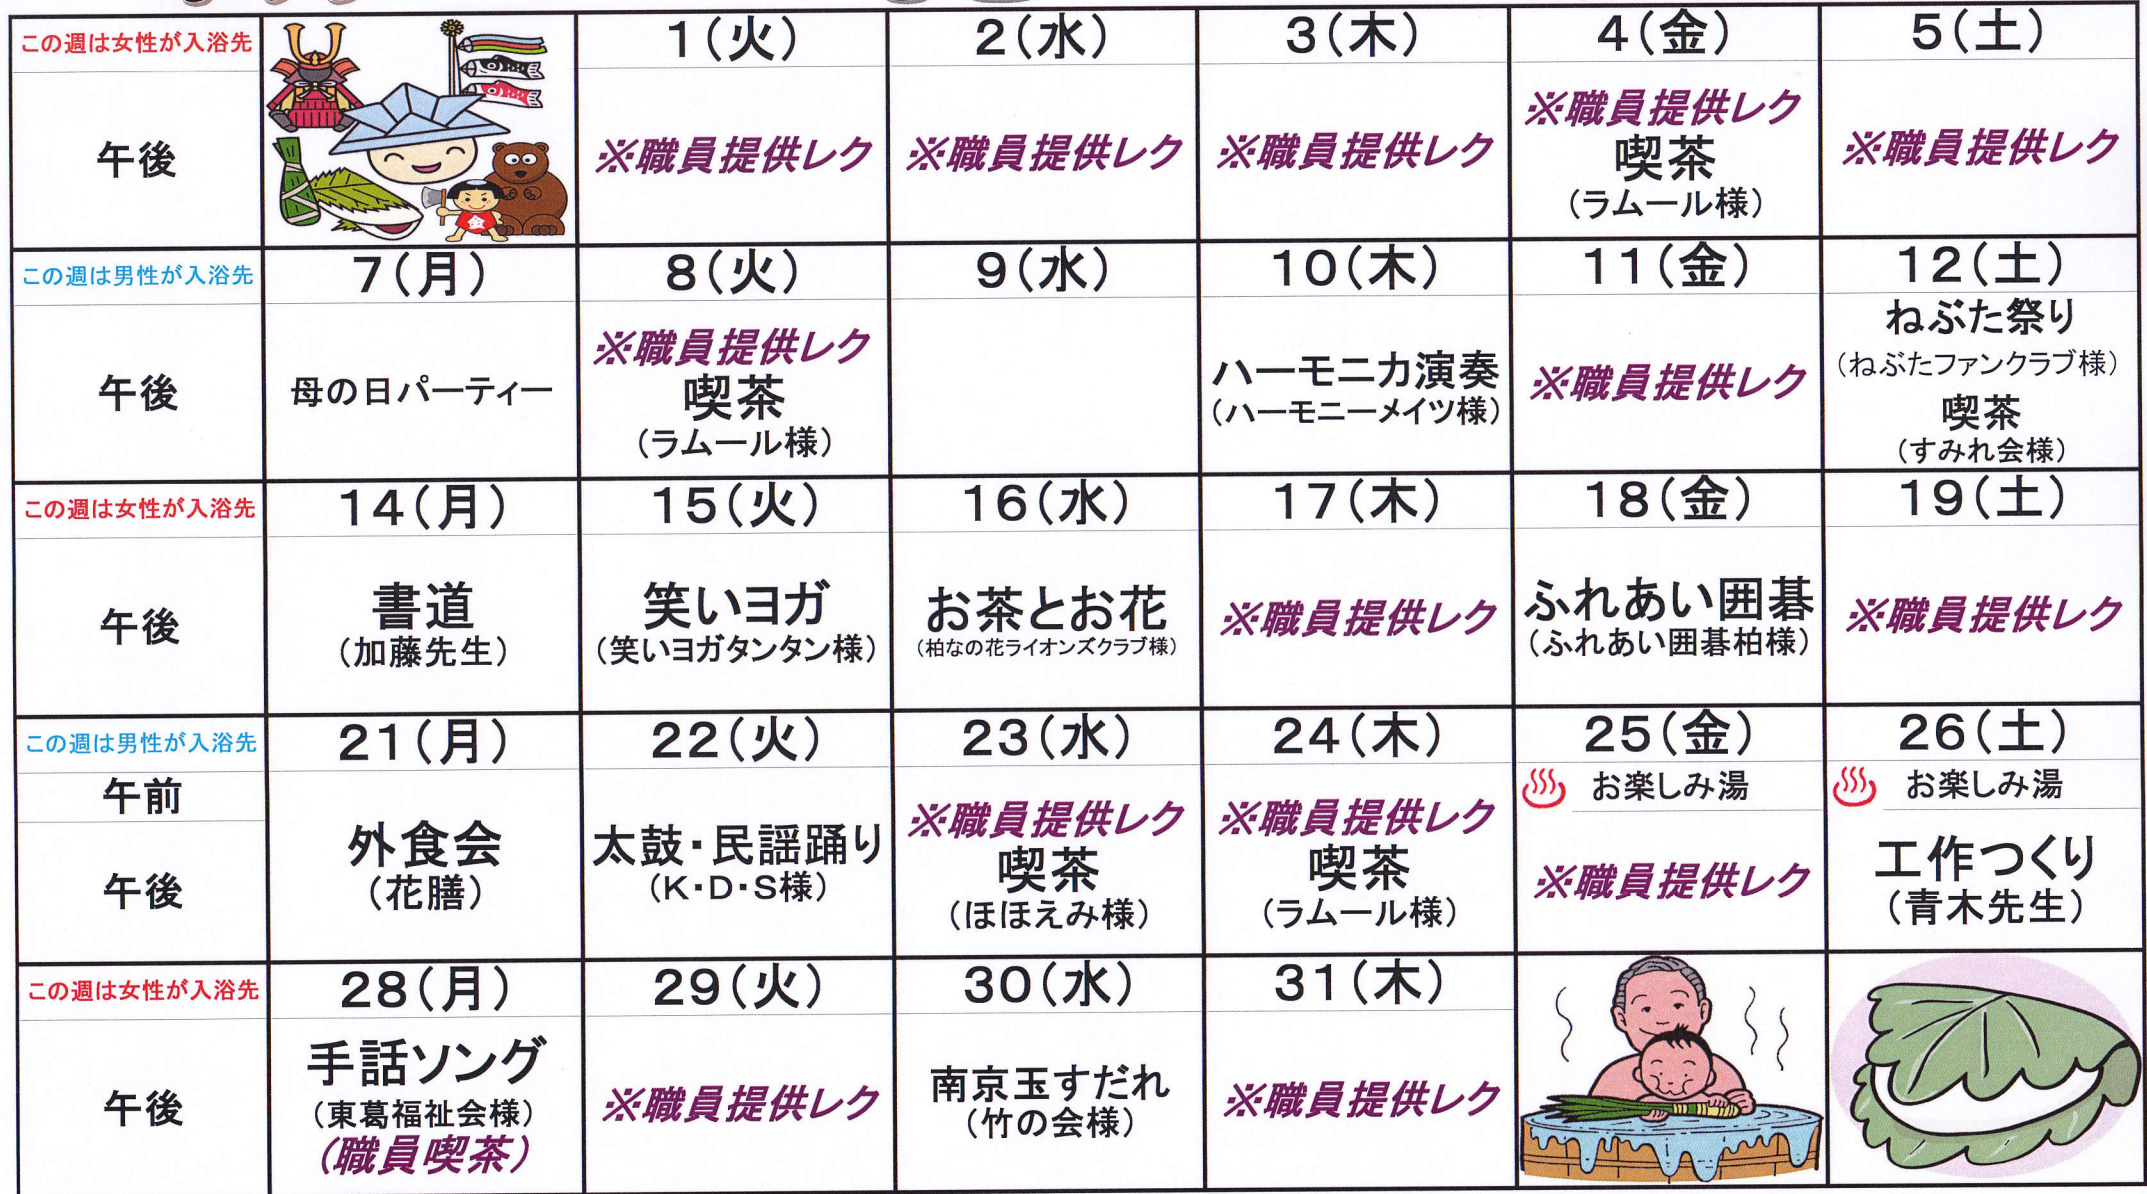 この週は女性が入浴先
1(火)
2(水)
3(木)
4(金)
5(土)
午後
※職員提供レク
※職員提供レク
※職員提供レク
※職員提供レク
喫茶
(ラムール様)
※職員提供レク
金
この週は男性が入浴先
7(月)
8(火)
9(水)
10(木)
11(金)
12(土)
午後
母の日パーティー
※職員提供レク
喫茶
(ラムール様)
ハーモニカ演奏
(ハーモニーメイツ様)
※職員提供レク
ねぶた祭り
(ねぶたファンクラブ様)
喫茶
(すみれ会様)
この週は女性が入浴先
14(月)
15(火)
16(水)
17(木)
18(金)
19(土)
午後
書道
(加藤先生)
笑いヨガ
(笑いヨガタンタン様)
お茶とお花
(柏なの花ライオンズクラブ様)
※職員提供レク
ふれあい囲碁
(ふれあい囲碁柏様)
※職員提供レク
この週は男性が入浴先
21(月)
22(火)
23(水)
24(木)
25(金)
26(土)
午前
お楽しみ湯
お楽しみ湯
午後
外食会
(花膳)
太鼓・民謡踊り
(K・D・S様)
※職員提供レク
喫茶
(ほほえみ様)
※職員提供レク
喫茶
(ラムール様)
※職員提供レク
工作つくり
(青木先生)
この週は女性が入浴先
28(月)
29(火)
30(水)
31(木)
午後
手話ソング
(東葛福祉会様)
(職員喫茶)
※職員提供レク
南京玉すだれ
(竹の会様)
※職員提供レク